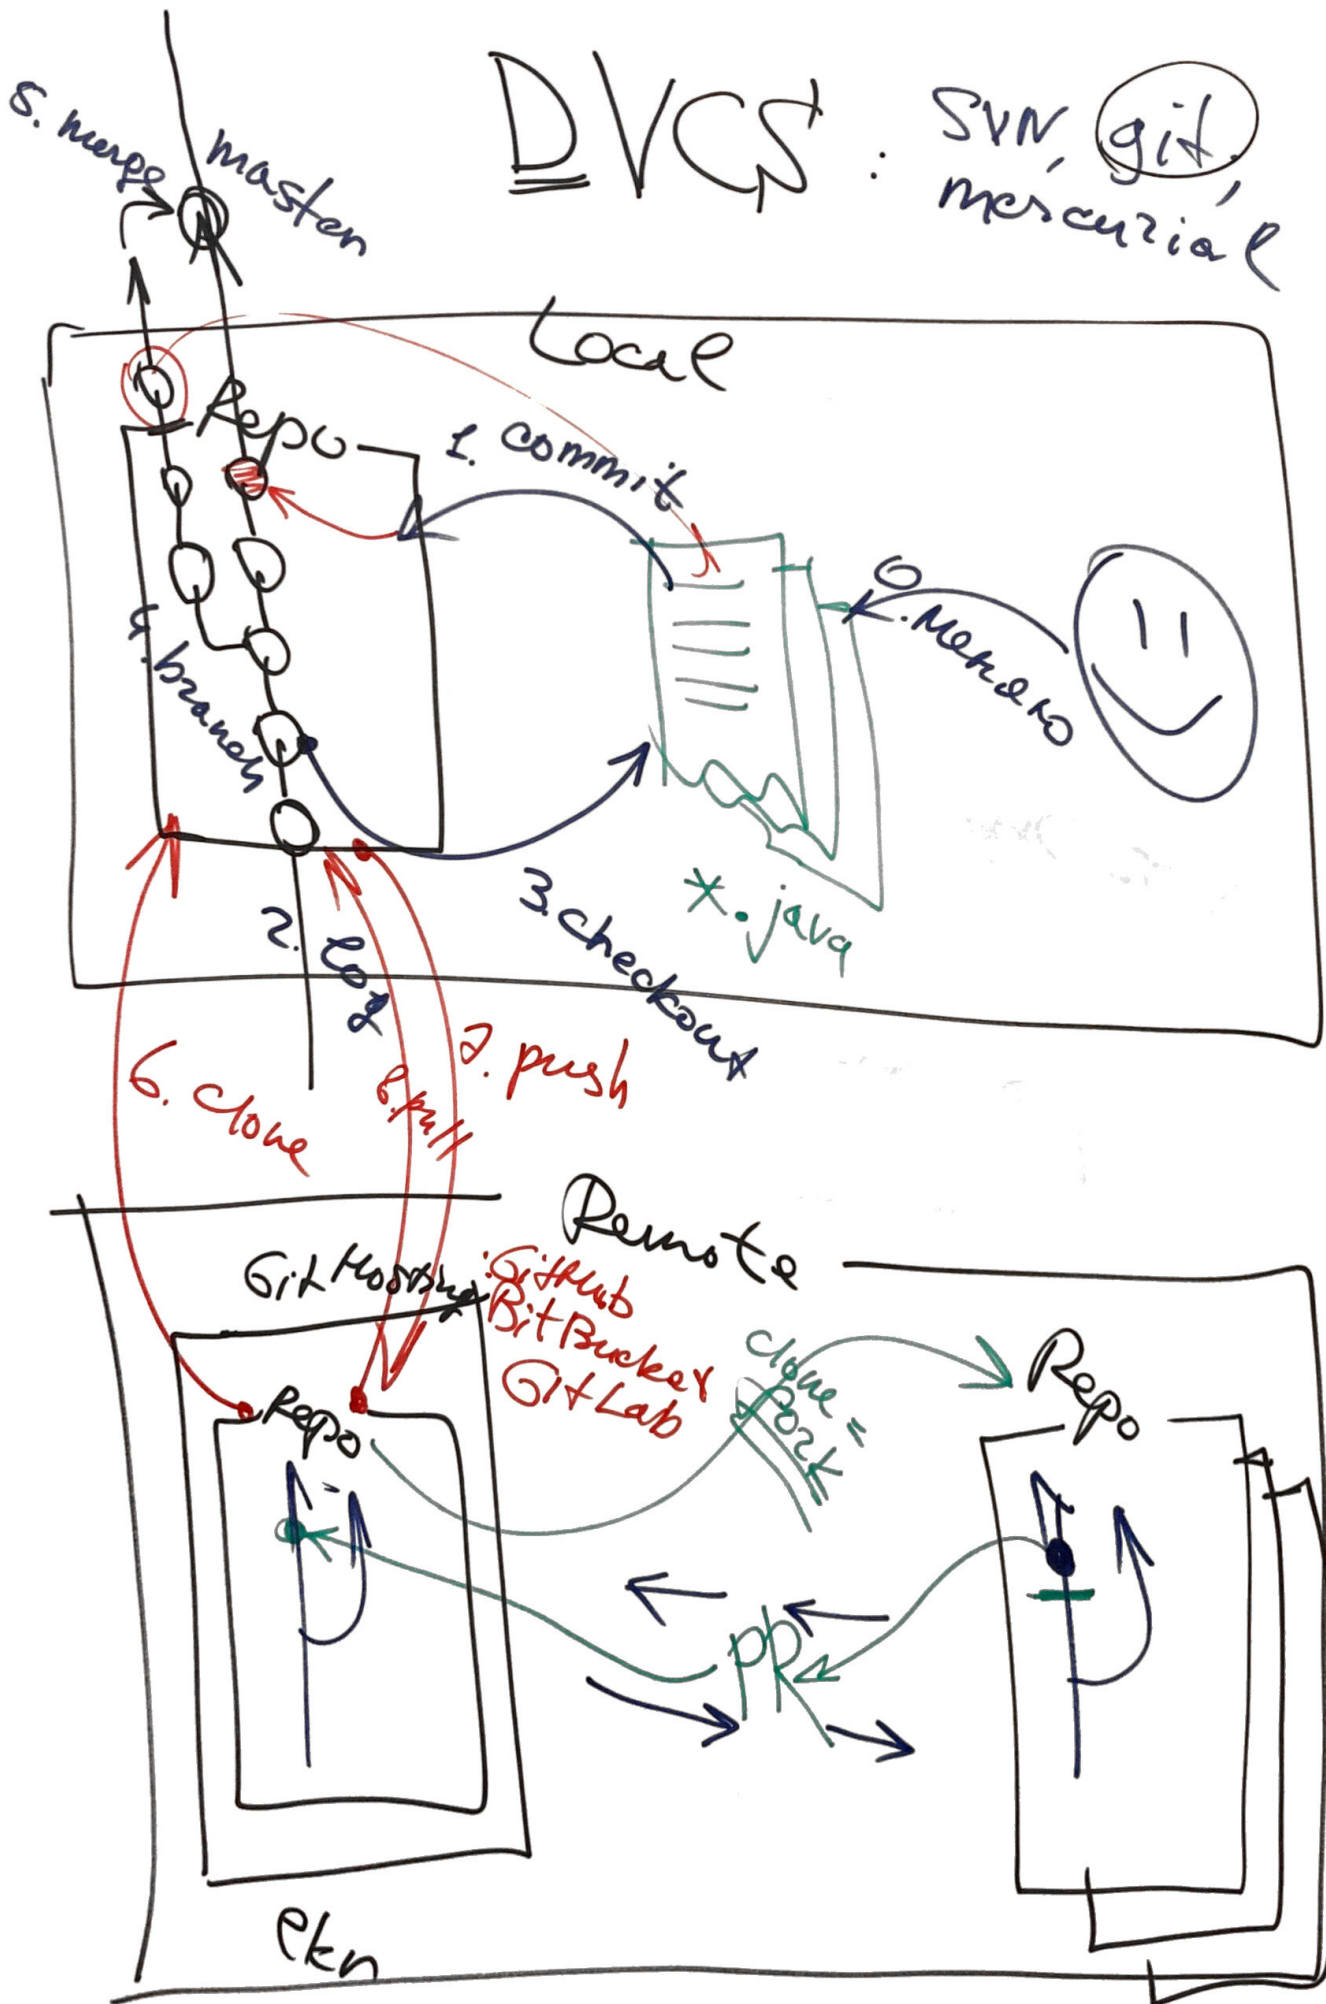 DVCS : SVN, git,
mercurial
5. merge
master
Local
Repo
1. commit
0. меняю
4. branch
*.java
3. checkout
2. log
6. clone
8. pull
7. push
Remote
Git Hosting : GitHub
BitBucket
GitLab
clone =
fork
Repo
Repo
PR